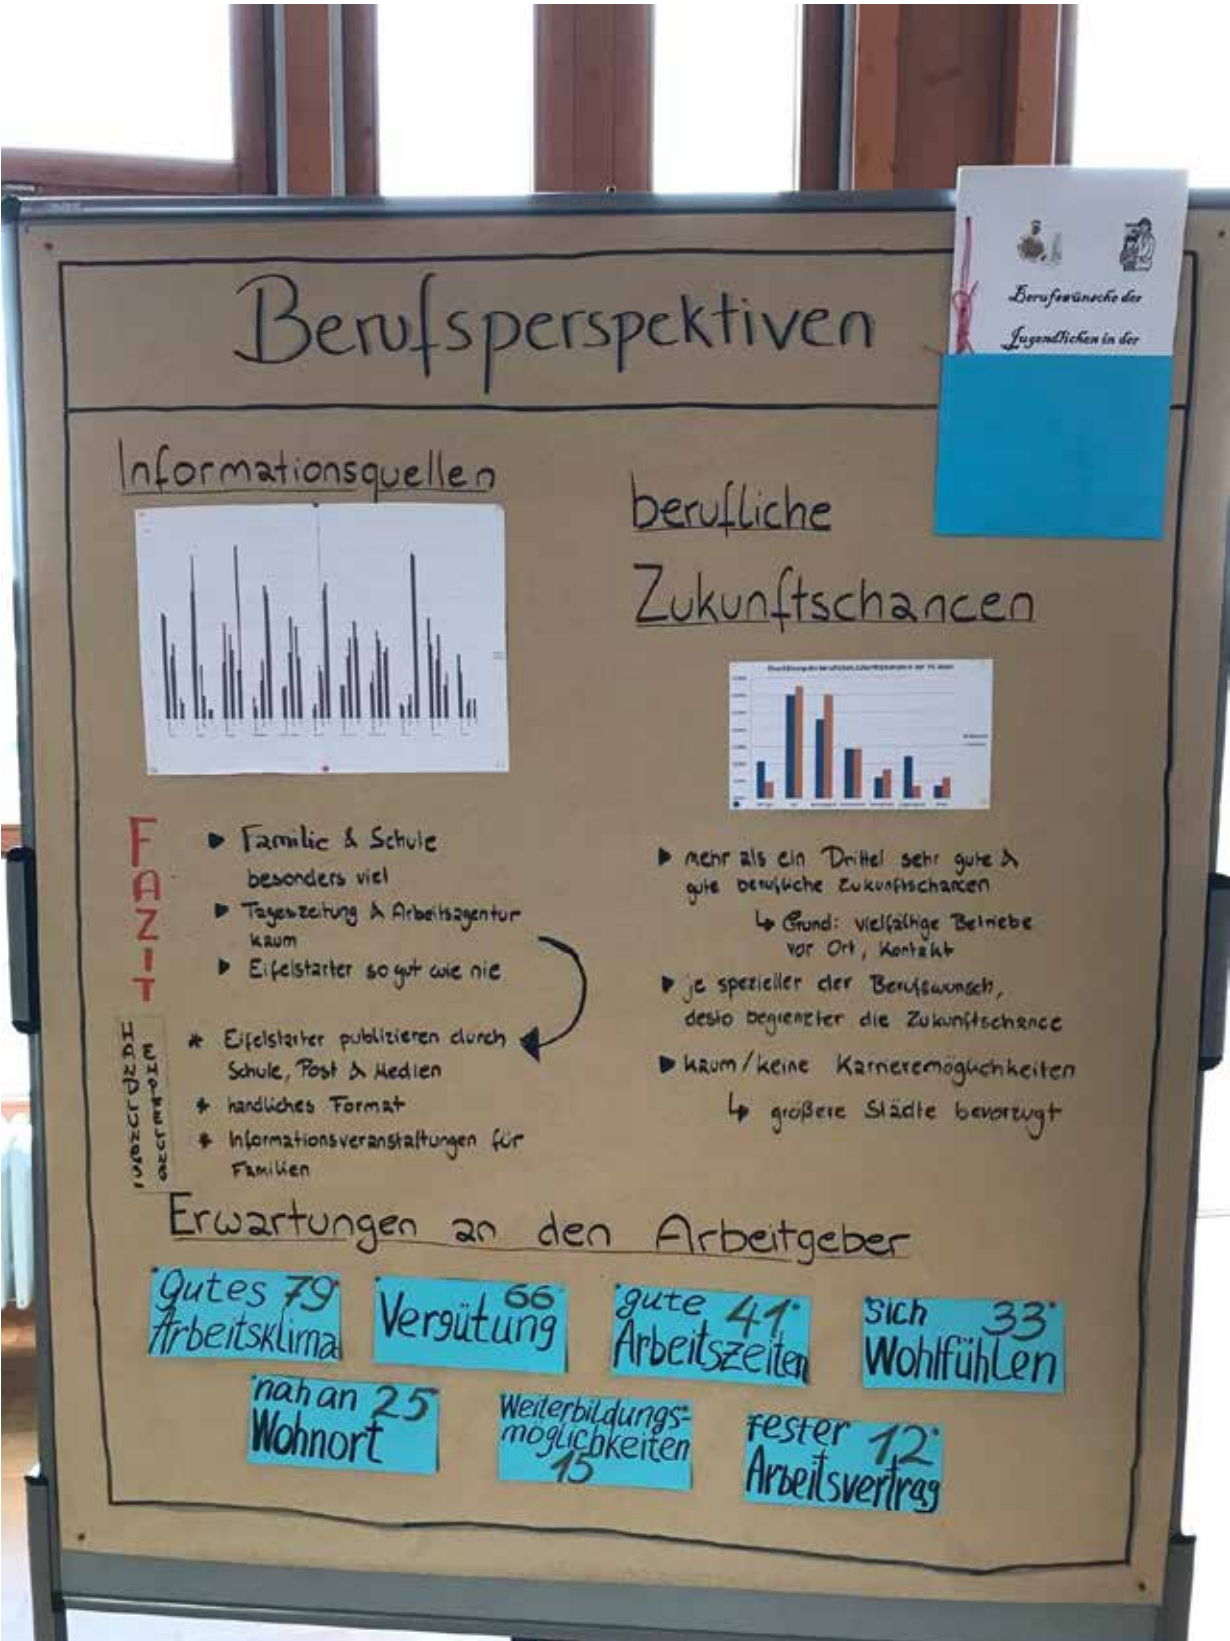 Berufswünsche der
Jugendlichen in der
Berufsperspektiven
Informationsquellen
FAZIT
Familie & Schule
besonders viel
Tageszeitung & Arbeitsagentur
kaum
Eifelstarter so gut wie nie
HANDLUNGS
EMPFEHLUNGEN
Eifelstarter publizieren durch
Schule, Post & Medien
handliches Format
Informationsveranstaltungen für
Familien
berufliche
Zukunftschancen
mehr als ein Drittel sehr gute &
gute berufliche Zukunftschancen
Grund: vielfältige Betriebe
vor Ort, Kontakt
je spezieller der Berufswunsch,
desto begrenzter die Zukunftschance
kaum/keine Karrieremöglichkeiten
größere Städte bevorzugt
Erwartungen an den Arbeitgeber
gutes 79
Arbeitsklima
66
Vergütung
gute 41
Arbeitszeiten
sich 33
Wohlfühlen
nah an 25
Wohnort
Weiterbildungs-
möglichkeiten
15
fester 12
Arbeitsvertrag